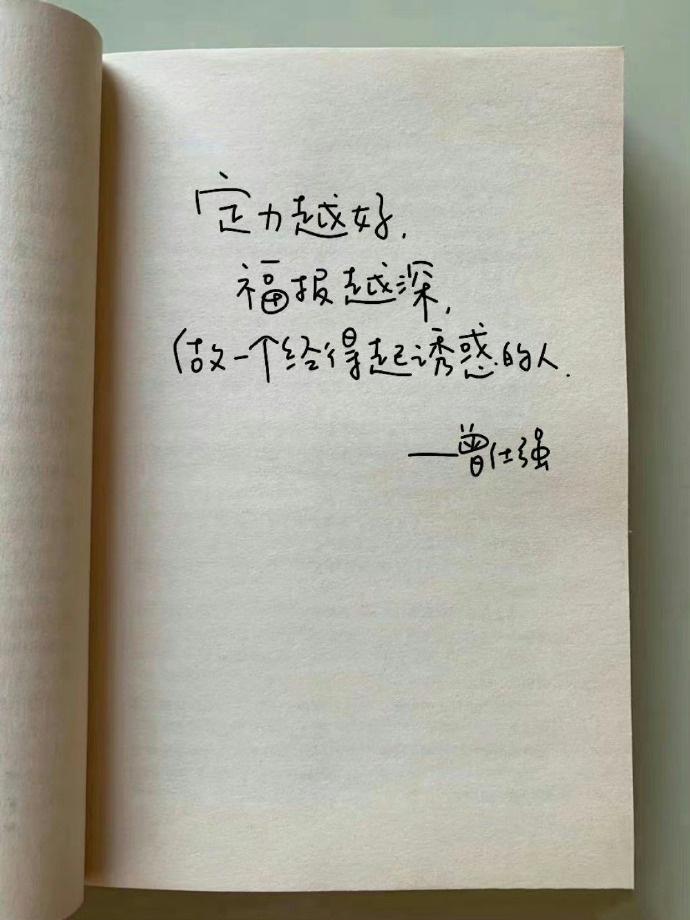 定力越好,
福报越深,
做一个经得起诱惑的人.
—曾仕强